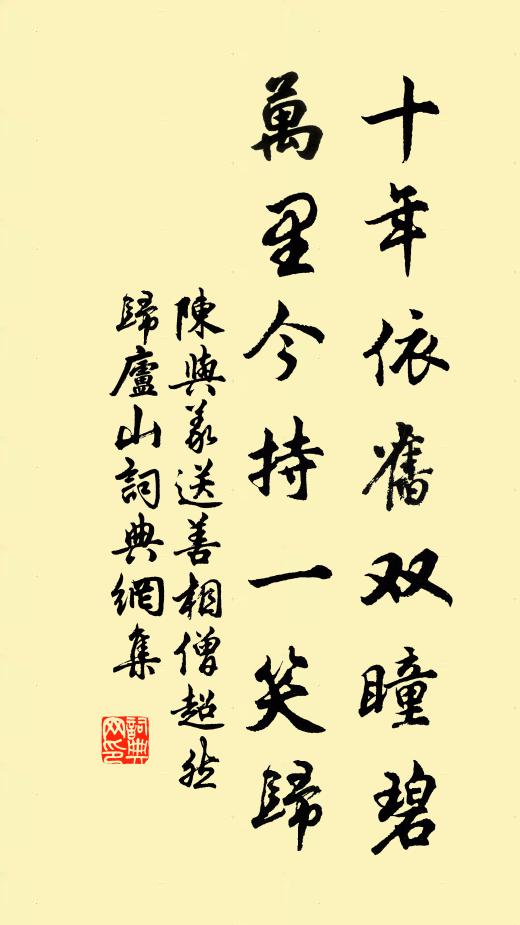 十年依舊双瞳碧
萬里今持一笑歸
陳與義送善相僧超然
歸廬山詞典網集
詞典
网印